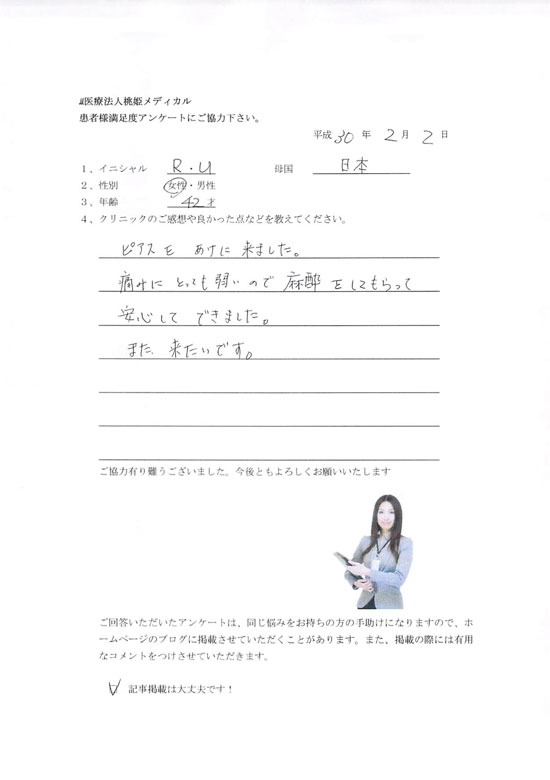 医療法人桃姫メディカル
患者様満足度アンケートにご協力下さい。
平成 30 年 2 月 2 日
1、イニシャル R・U 母国 日本
2、性別 女性・男性
3、年齢 42才
4、クリニックのご感想や良かった点などを教えてください。
ピアスを あけに 来ました。
痛みに とっても 弱いので 麻酔をしてもらって
安心して できました。
また 来たいです。
ご協力有り難うございました。今後ともよろしくお願いいたします
ご回答いただいたアンケートは、同じ悩みをお持ちの方の手助けになりますので、ホ
ームページのブログに掲載させていただくことがあります。また、掲載の際には有用
なコメントをつけさせていただきます。
記事掲載は大丈夫です！